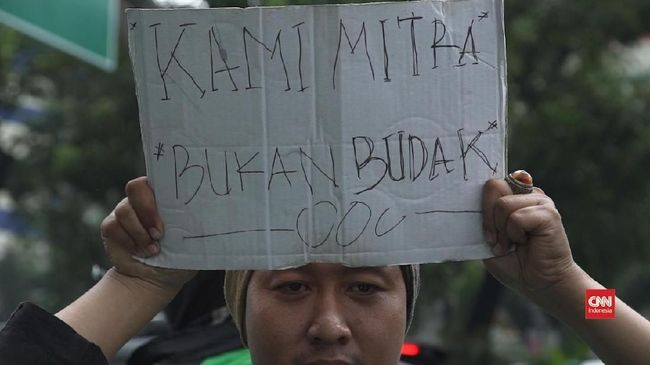 *KAMI MITRA*
*BUKAN BUDAK*
CNN
Indonesia